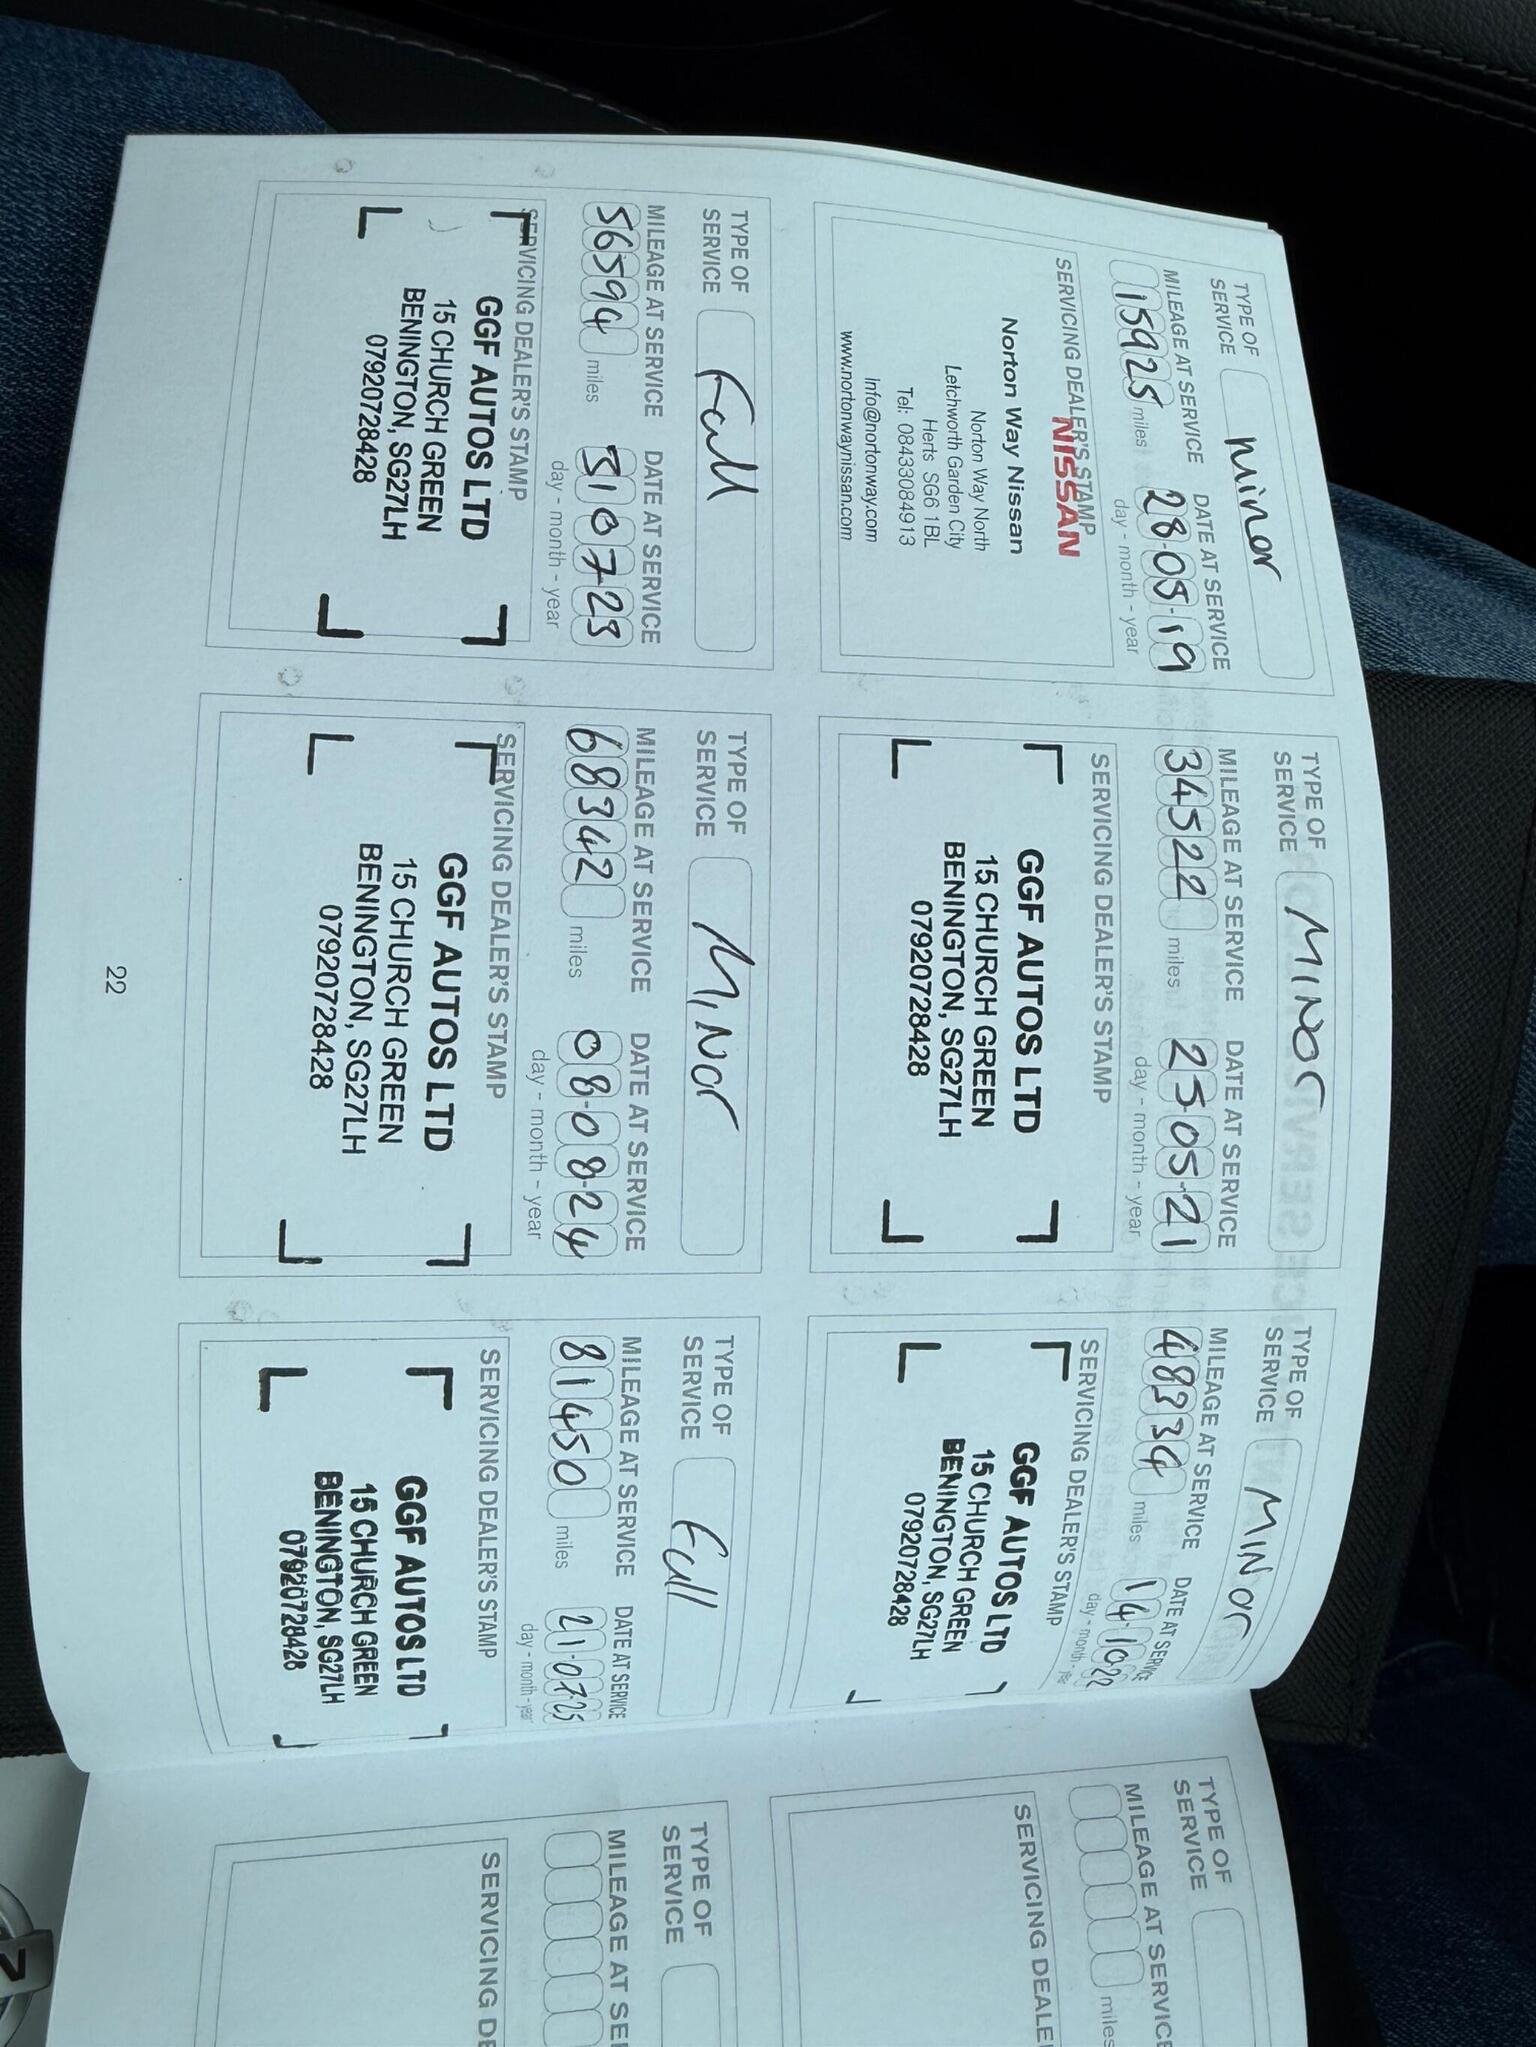 TYPE OF
SERVICE
minor
MILEAGE AT SERVICE
DATE AT SERVICE
15925 miles
28·05·19
day - month - year
SERVICING DEALER'S STAMP
NISSAN
Norton Way Nissan
Norton Way North
Letchworth Garden City
Herts SG6 1BL
Tel: 08433084913
Info@nortonway.com
www.nortonwaynissan.com
TYPE OF
SERVICE
MINOR
MILEAGE AT SERVICE
DATE AT SERVICE
34522 miles
25·05·21
day - month - year
SERVICING DEALER'S STAMP
GGF AUTOS LTD
15 CHURCH GREEN
BENINGTON, SG27LH
07920728428
TYPE OF
SERVICE
MINOR
MILEAGE AT SERVICE
DATE AT SERVICE
48334 miles
14·1022
day - month - year
SERVICING DEALER'S STAMP
GGF AUTOS LTD
15 CHURCH GREEN
BENINGTON, SG27LH
07920728428
TYPE OF
SERVICE
Full
MILEAGE AT SERVICE
DATE AT SERVICE
56594 miles
310723
day - month - year
SERVICING DEALER'S STAMP
GGF AUTOS LTD
15 CHURCH GREEN
BENINGTON, SG27LH
07920728428
TYPE OF
SERVICE
MINOR
MILEAGE AT SERVICE
DATE AT SERVICE
68342 miles
08·08·24
day - month - year
SERVICING DEALER'S STAMP
GGF AUTOS LTD
15 CHURCH GREEN
BENINGTON, SG27LH
07920728428
TYPE OF
SERVICE
Full
MILEAGE AT SERVICE
DATE AT SERVICE
81450 miles
21·07·25
day - month - year
SERVICING DEALER'S STAMP
GGF AUTOS LTD
15 CHURCH GREEN
BENINGTON, SG27LH
07920728428
22
TYPE OF
SERVICE
MILEAGE AT SERVICE
miles
SERVICING DEALE
TYPE OF
SERVICE
MILEAGE AT SE
SERVICING DE